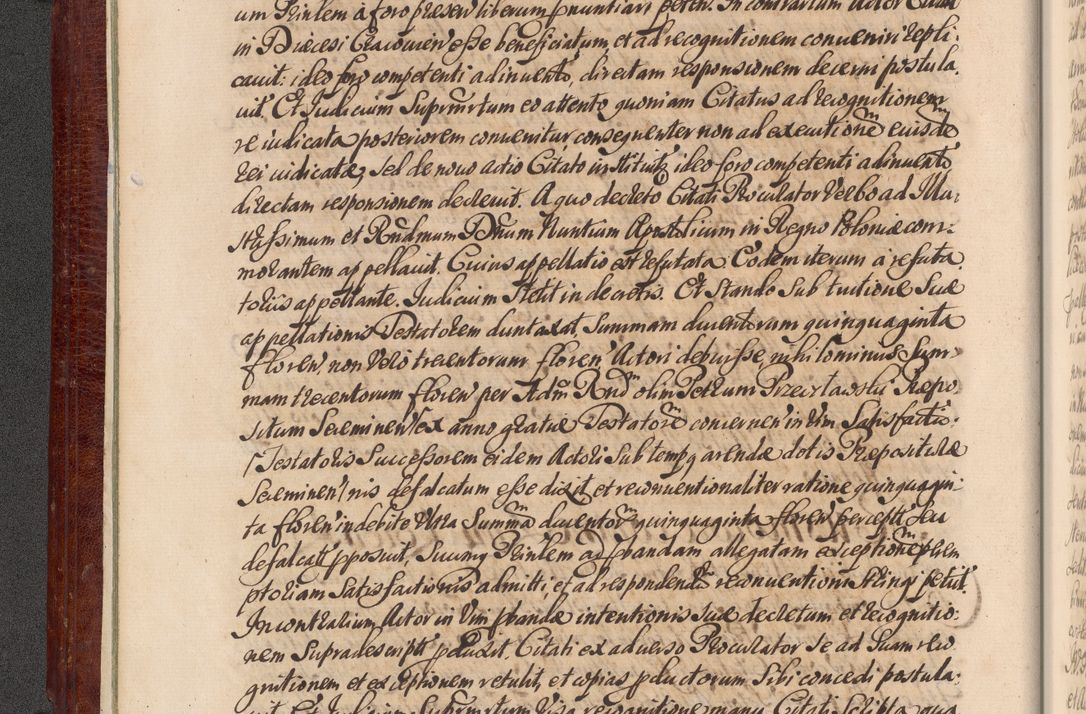 um Prinlem à foro præsen liberum pnuntiari peten. In contrarium Actor Citatum
in Diæcesi Cracovien esse beneficiatum, et ad recognitionem conveniri repli-
cavit: ideo foro competenti adinvento, directam responsionem decerni postula-
vit. Et Judicium Suprmrtum eo attento quoniam Citatus ad recognitionem
rei iudicatæ posteriorem convenitur, consequenter non ad executionem eiusdem
rei iudicatæ, sed de novo actio Citato instituitur, ideo foro competenti adinvento
directam responsionem decrevit. A quo decreto Citati Procurator verbo ad Illu-
strissimum et Rndmum Dnum Nuntium Apostolicum in Regno Poloniæ com-
morantem appellavit. Cuius appellatio est refutata. Eodem iterum à refuta-
toriis appellante. Judicium stetit in decretis. Et stando sub tuitione Suæ
appellationis Testatorem duntaxat, Summam ducentorum quinquaginta
floren, non verò trecentorum floren Actori debuisse, nihilominus Sum-
mam trecentorum floren per Adm Rnd olim Petrum Præpo-
situm Sceminen ex anno gratiæ Testatorem concernen in vim Satisfactio:
Testatoris Successorem eidem Actori sub tempq arendæ dotis Præposituræ
Sceminen nis defalcatum esse dixit et reconventionaliter ratione quinquagin-
ta floren indebite ultra Summam ducentor quinquaginta floren percepti seu
defalcati pposuit, Sucunq Prinlem ad pbandam allegatam exceptionem prem
ptoriam Satisfactionis admitti, et ad respondendum reconventioni stringi petiit.
In contrarium Actor in vim pbandæ intentionis suæ decretum et recognitio-
nem Supradescript pduxit, Citati ex adverso Procurator se ad Suam reco
gnitionem et exceptionem retulit, et copias pductorum Sibi concedi postula-
vit. Et Judicium Suprmrtum Visa recognitione manu Citati Scripta qua